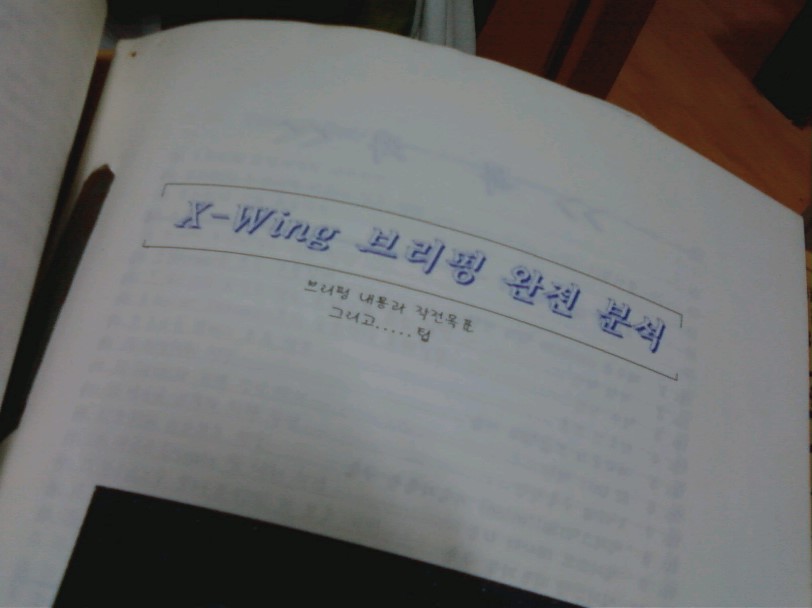 X-Wing 브리핑 완전 분석
브리핑 내용과 작전목표
그리고.....팁